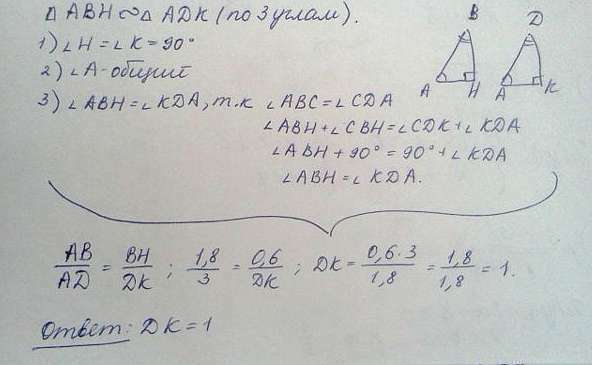 Δ ABH ∾ Δ ADK (по 3 углам).
1) ∠H = ∠K = 90°
2) ∠A - общий
3) ∠ABH = ∠KDA, т.к ∠ABC = ∠CDA
∠ABH + ∠CBH = ∠CDK + ∠KDA
∠ABH + 90° = 90° + ∠KDA
∠ABH = ∠KDA.
B D
A H A K
AB/AD = BH/DK ; 1,8/3 = 0,6/DK ; DK = 0,6·3/1,8 = 1,8/1,8 = 1.
Ответ: DK = 1